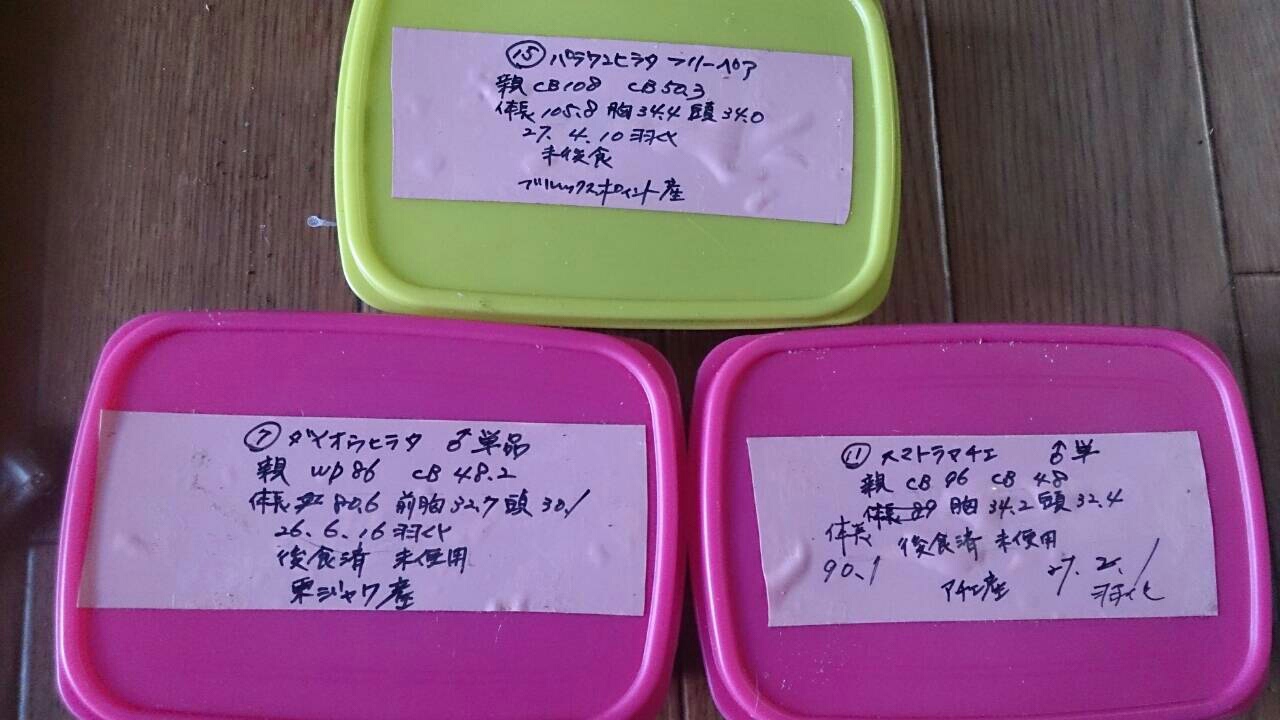 ⑮ パラワンヒラタ フリーペア
親 CB108 CB50.3
体長 105.8 胸34.4 頭34.0
27. 4. 10 羽化
未後食
ブルックスポイント産
⑦ ダイオウヒラタ ♂単品
親 WD86 CB 48.2
体長 80.6 前胸32.7 頭30.1
26. 6. 16 羽化
後食済 未使用
東ジャワ産
⑪ スマトラアチェ ♂単
親 CB 96 CB 48
体長 89 胸 34.2 頭 32.4
体長 90.1
後食済 未使用
アチェ産
27. 2. 1
羽化